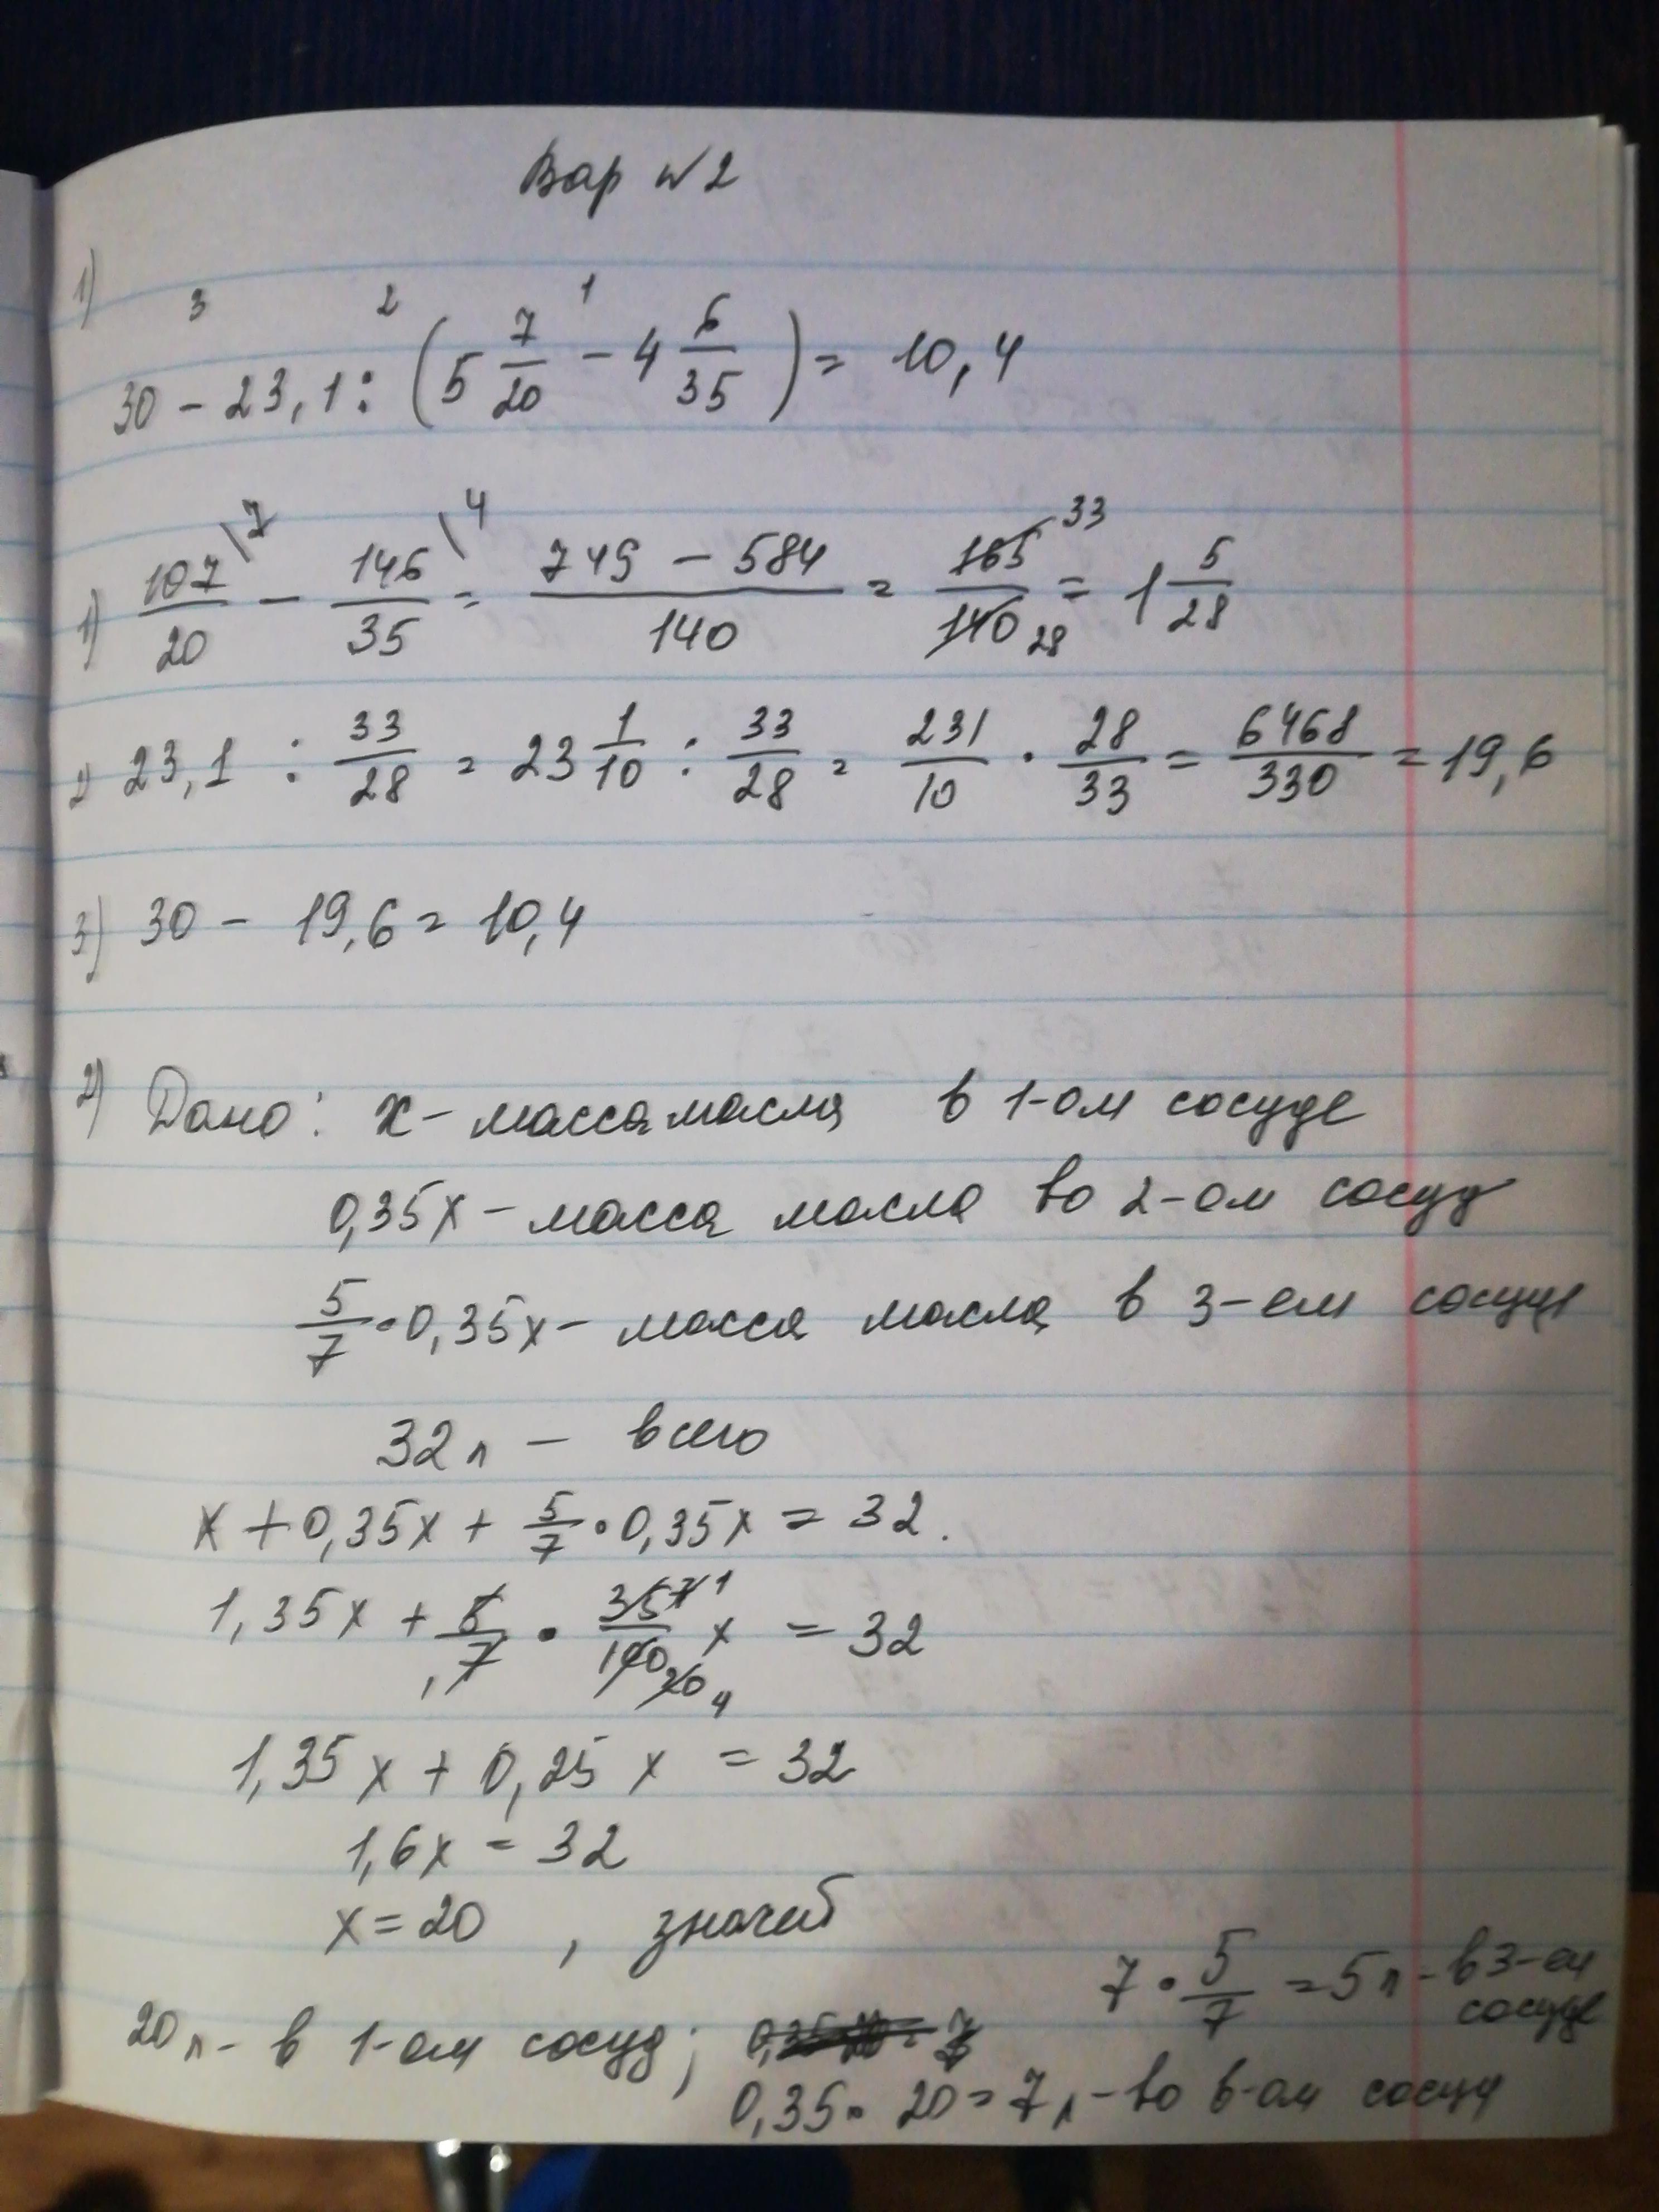 Вар №2
1)
3 2 1
30 - 23,1 : (5 7/20 - 4 6/35) = 10,4
1) 107/20 \7 - 146/35 \4 = (749 - 584)/140 = 165/140 33 28 = 1 5/28
2) 23,1 : 33/28 = 23 1/10 : 33/28 = 231/10 · 28/33 = 6468/330 = 19,6
3) 30 - 19,6 = 10,4
2) Дано: x - масса масла в 1-ом сосуде
0,35x - масса масла во 2-ом сосуд
5/7 · 0,35x - масса масла в 3-ем сосуде
32 л - всего
x + 0,35x + 5/7 · 0,35x = 32.
1,35x + 5/7 1 · 35/100 7 1 20 4 x = 32
1,35x + 0,25x = 32
1,6x = 32
x = 20, значит
7 · 5/7 = 5 л - в 3-ем
сосуде
20 л - в 1-ом сосуд;
0,35 · 20 = 7 л - во в-ом сосуд